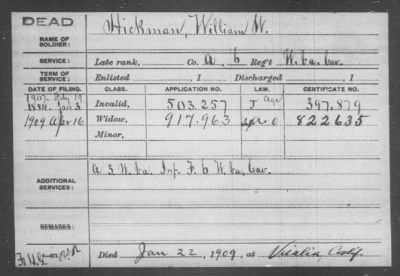 DEAD
NAME OF SOLDIER: Hickman, William W.
SERVICE: Late rank, Co. A, 6 Reg't W. Va. Cav.
TERM OF SERVICE: Enlisted , 1 Discharged , 1
DATE OF FILING. CLASS. APPLICATION NO. LAW. CERTIFICATE NO.
1907. Feb 19 Age
1884. Jan 3 Invalid, 503.257 J 397.879
1909 Apr 16 Widow, 917.963 822635
Minor,
ADDITIONAL SERVICES: A 3 W. Va. Inf. F. 6 W. Va. Cav.
REMARKS:
Died Jan 22, 1909, at Visalia, Calif.